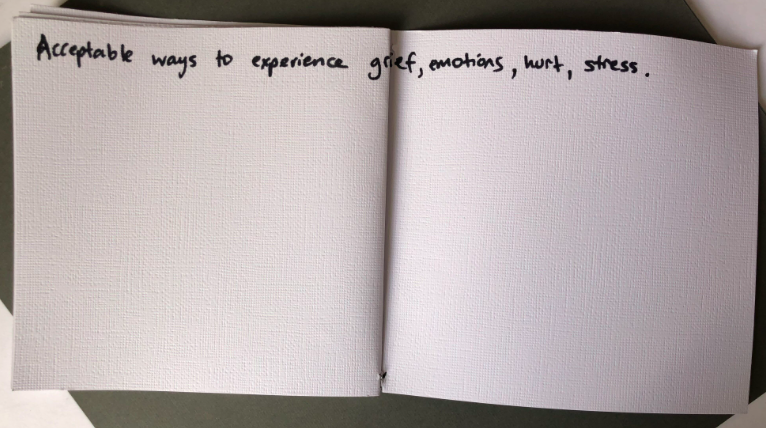 Acceptable ways to experience grief, emotions, hurt, stress.